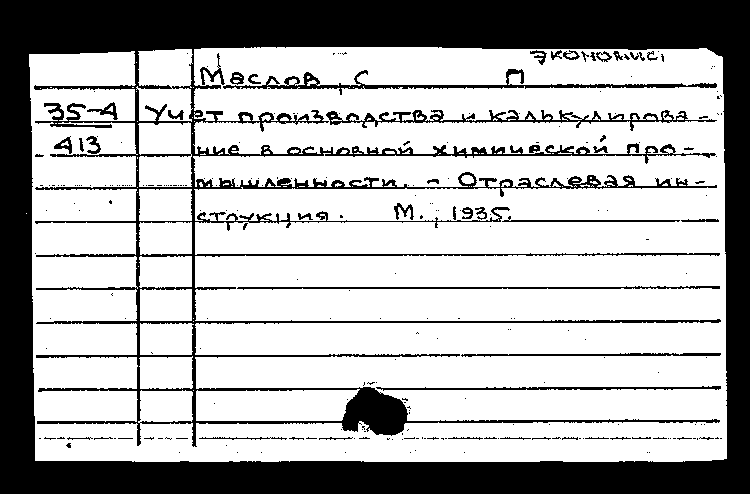 экономист
Маслов, С П
35-4 Учет производства и калькулирова-
413 ние в основной химической про-
мышленности. - Отраслевая ин-
струкция. М., 1935.